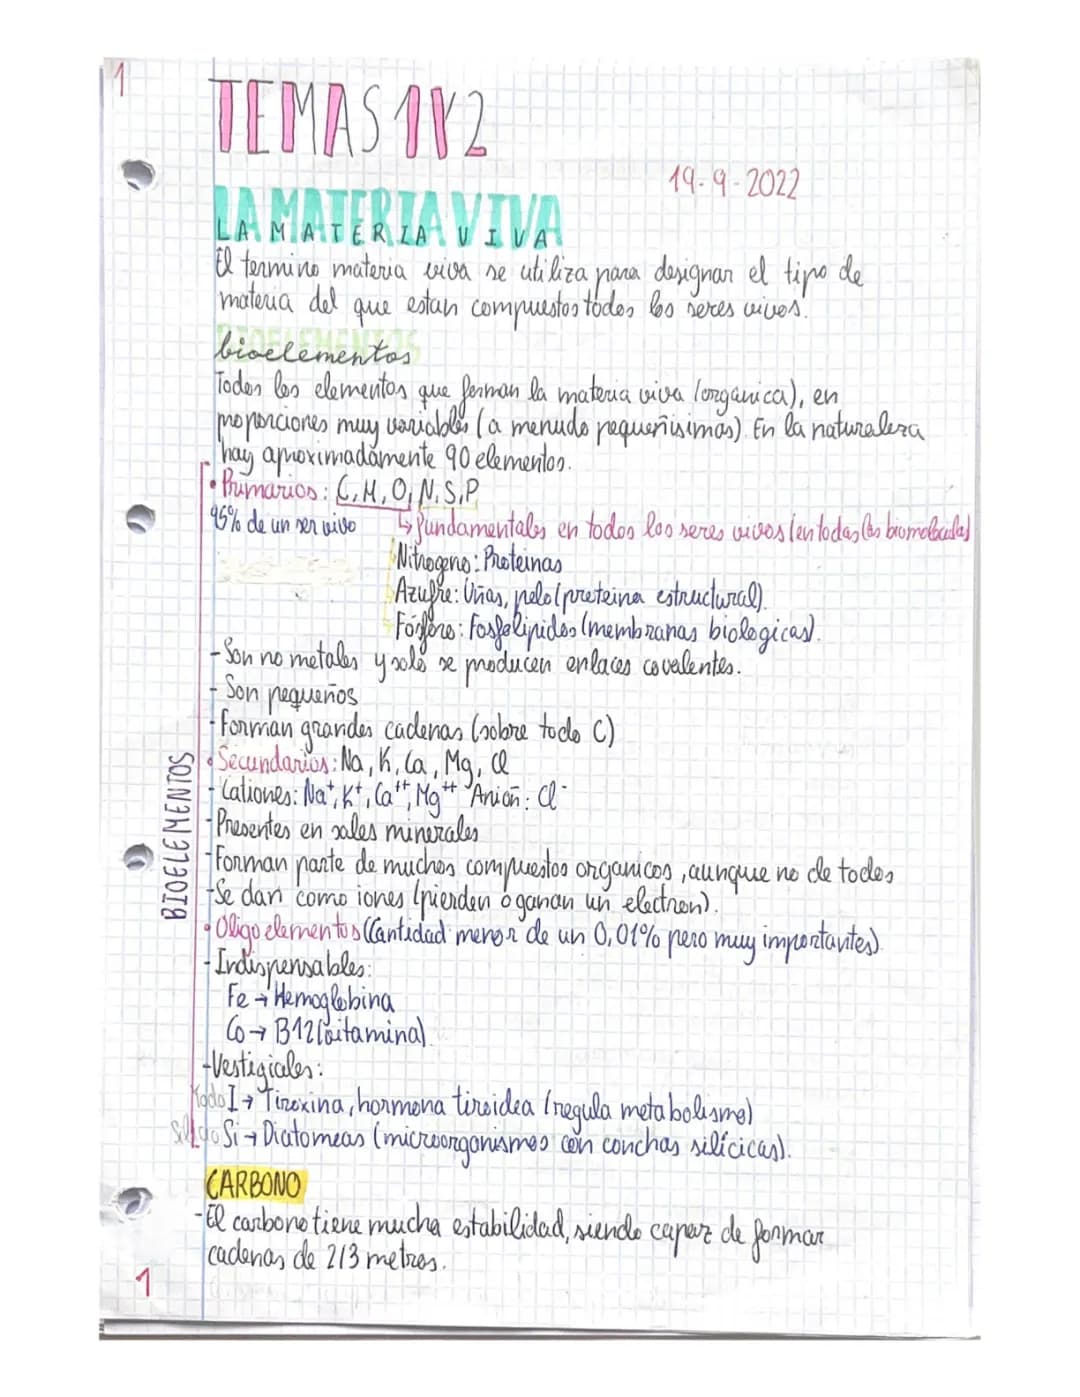 1
TEMAS 1Y2
19-9-2022
LA MATERIA VIVA
LA MATERIA VIVA
El termino materia viva se utiliza para designar el tipo de
materia del que estan compuestos todos los seres vivos.
BIOELEMENTOS
bioelementos
Todos los elementos que forman la materia viva (organica), en
proporciones muy variables (a menudo pequeñisimas). En la naturaleza
hay aproximadamente 90 elementos.
• Primarios: C, H, O, N, S, P
96% de un ser vivo ↳ fundamentales en todos los seres vivos (en todas las biomoleculas)
Nitrogeno: Proteinas
Azufre: Uñas, pelo (proteina estructural).
Fósforo: Fosfolipidos (membranas biologicas).
- Son no metales y solo se producen enlaces covalentes.
- Son pequeños
- Forman grandes cadenas (sobre todo C)
• Secundarios: Na, K, Ca, Mg, Cl
- Cationes: Na⁺, K⁺, Ca⁺⁺, Mg⁺⁺ Anion: Cl⁻
- Presentes en sales minerales
- Forman parte de muchos compuestos organicos, aunque no de todos
- Se dan como iones (pierden o ganan un electron).
BIOELEMENTOS
• Oligoelementos (Cantidad menor de un 0,01% pero muy importantes).
- Indispensables:
Fe → Hemoglobina
Co → B12 (vitamina).
- Vestigiales:
Yodo I → Tiroxina, hormona tiroidea (regula metabolismo)
Si → Diatomeas (microorganismos con conchas silícicas).
CARBONO
- El carbono tiene mucha estabilidad, siendo capaz de formar
cadenas de 2/3 metros.
1